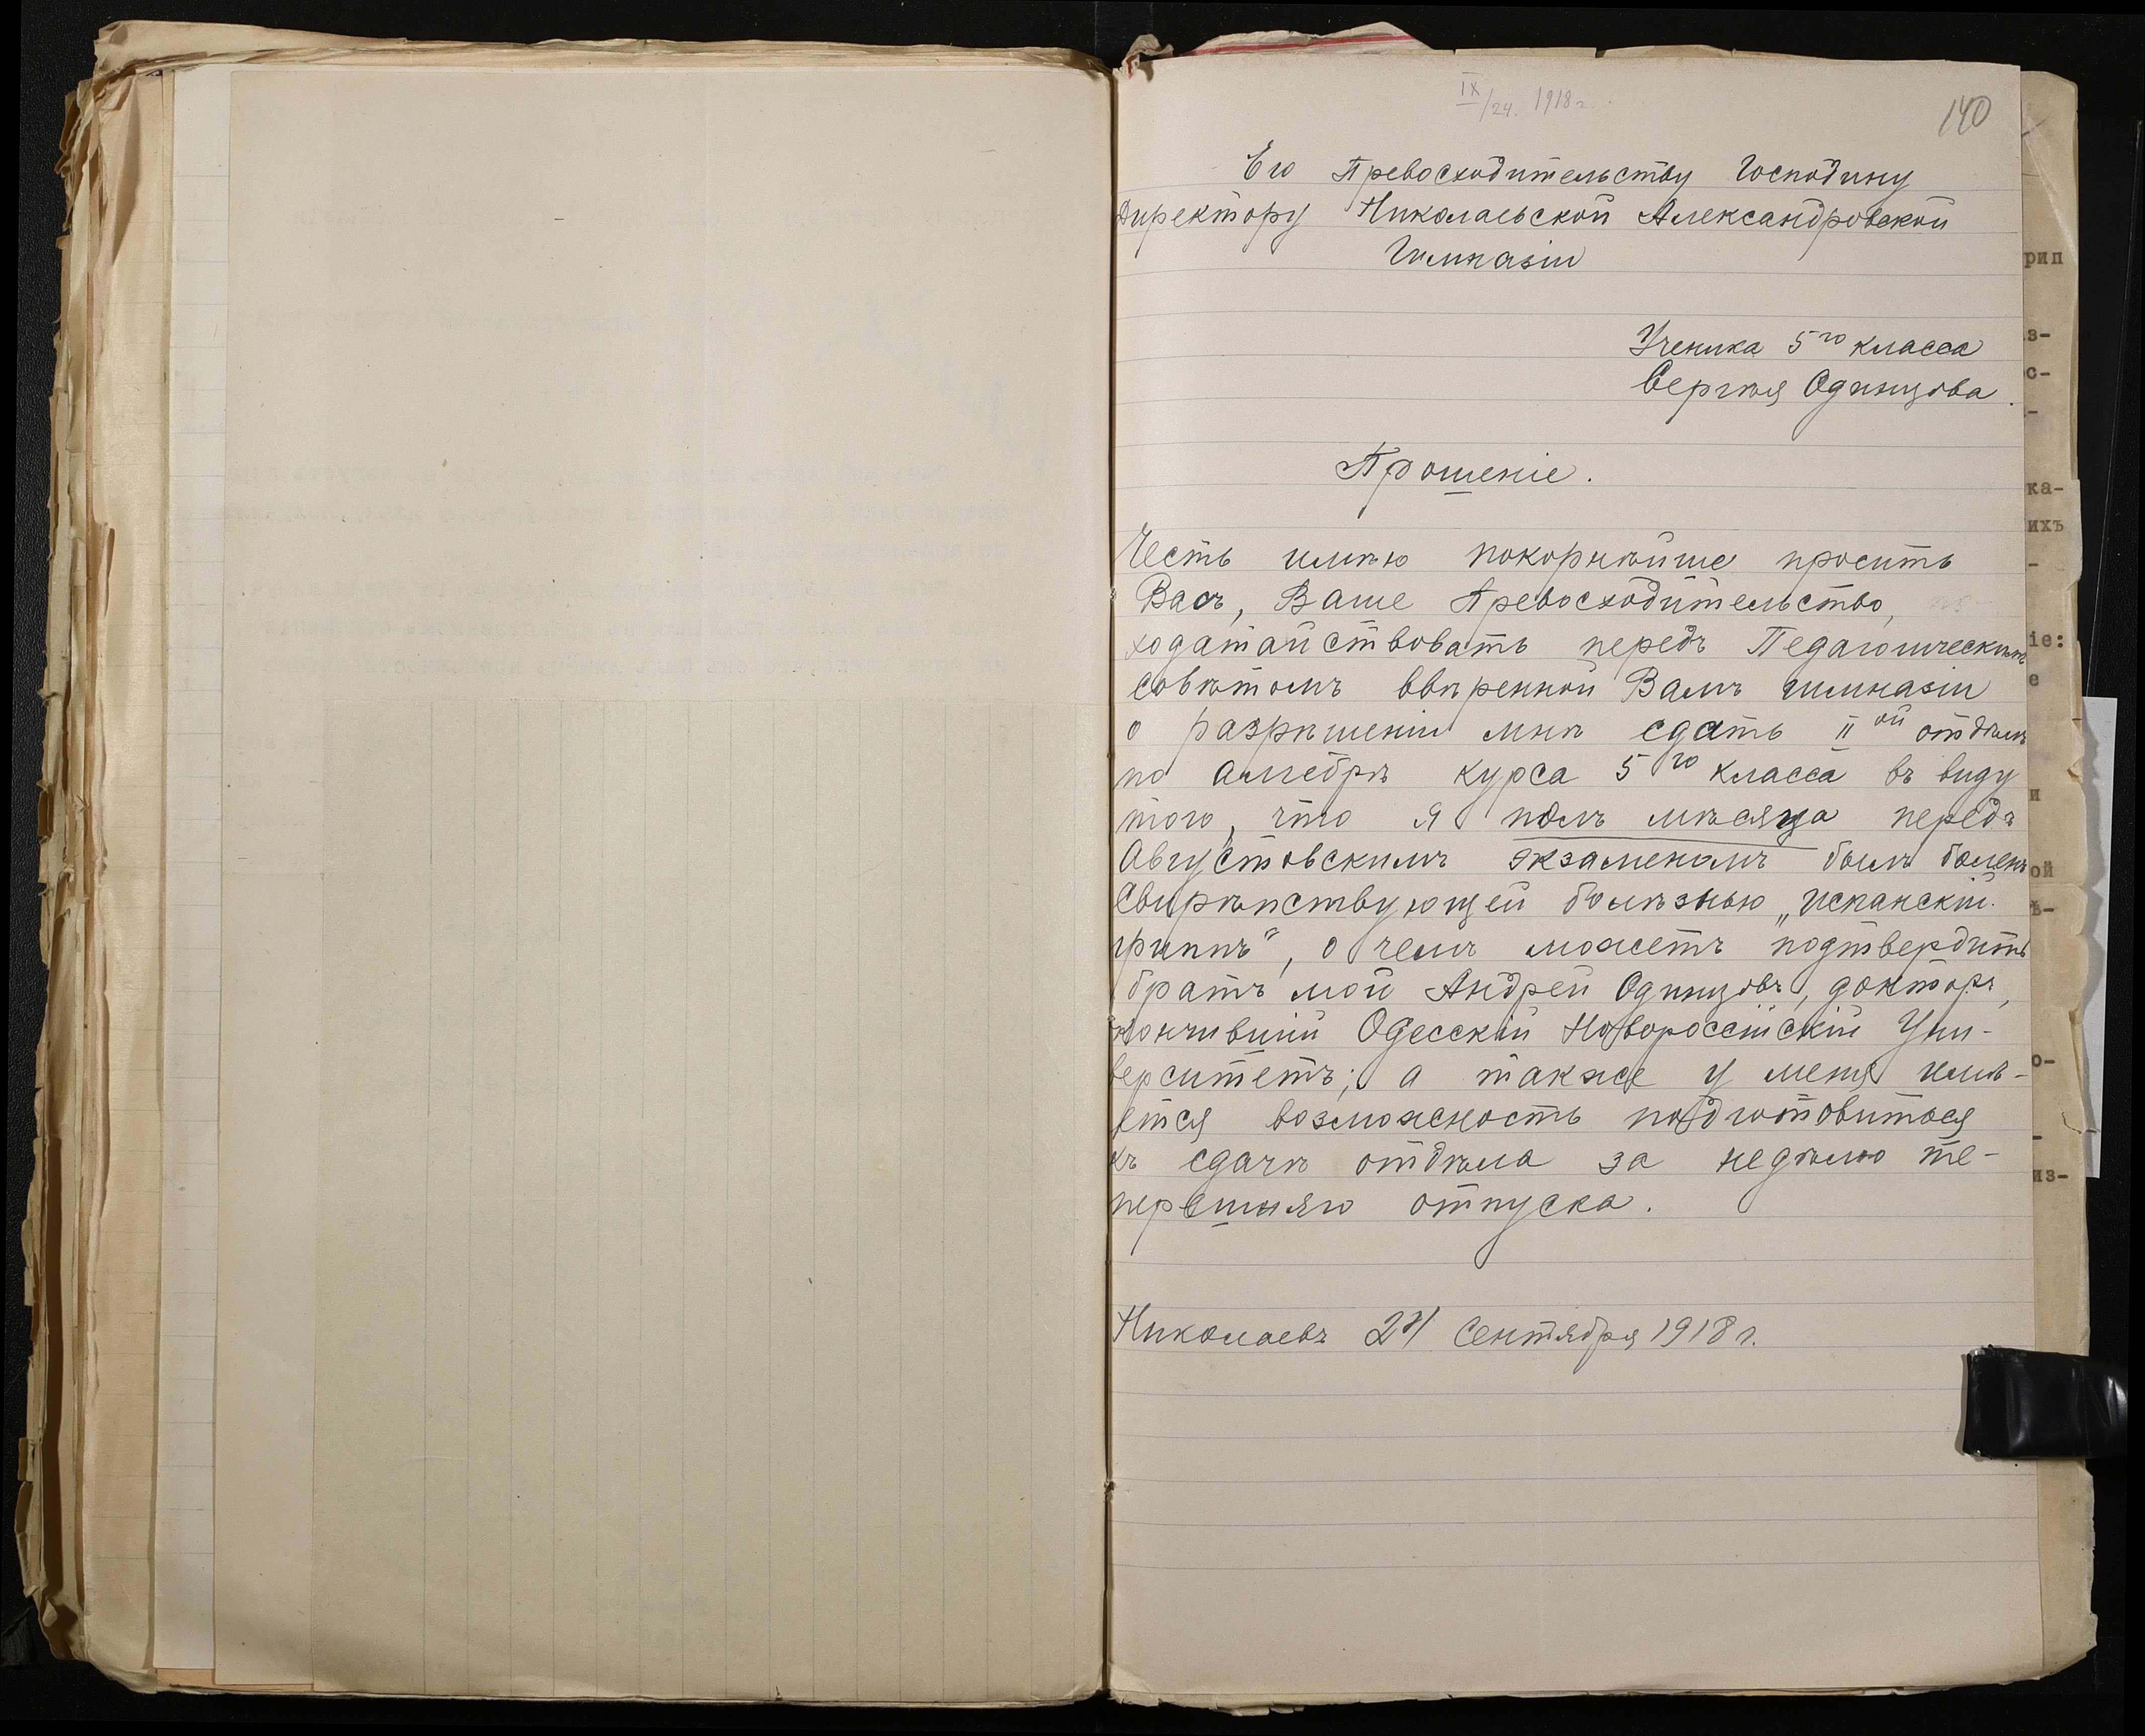 IX/24. 1918 г.
140
Его Превосходительству Господину
Директору Николаевской Александровской
Гимназіи
Ученика 5го класса
Сергѣя Одинцова.
Прошеніе.
Честь имѣю покорнѣйше просить
Васъ, Ваше Превосходительство,
ходатайствовать передъ Педагогическимъ
совѣтомъ ввѣренной Вамъ гимназіи
о разрѣшеніи мнѣ сдать IIой отдѣлъ
по алгебрѣ курса 5го класса въ виду
того, что я полъ мѣсяца передъ
Августовскимъ экзаменамъ былъ боленъ
свирѣпствующей болѣзнью „испанскій
гриппъ“, о чемъ можетъ подтвердить
братъ мой Андрей Одинцовъ, докторъ,
кончившій Одесскій Новороссійскій Уни-
верситетъ; а также у меня имѣ-
ется возможность подготовиться
къ сдачѣ отдѣла за недѣлю те-
перешняго отпуска.
Николаевъ 24 Сентября 1918 г.
рип
з-
с-
-
ка-
ихъ
-
іе:
е
и
ой
ѣ-
о-
-
из-